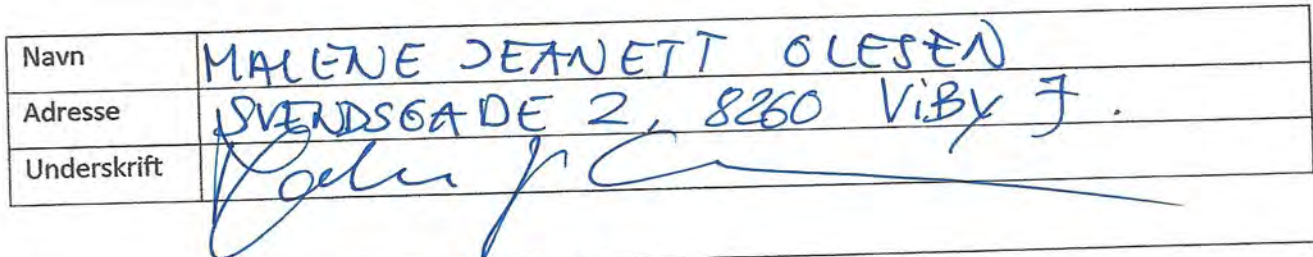 Navn MALENE JEANETT OLESEN
Adresse SVENDSGADE 2, 8260 ViBY J.
Underskrift